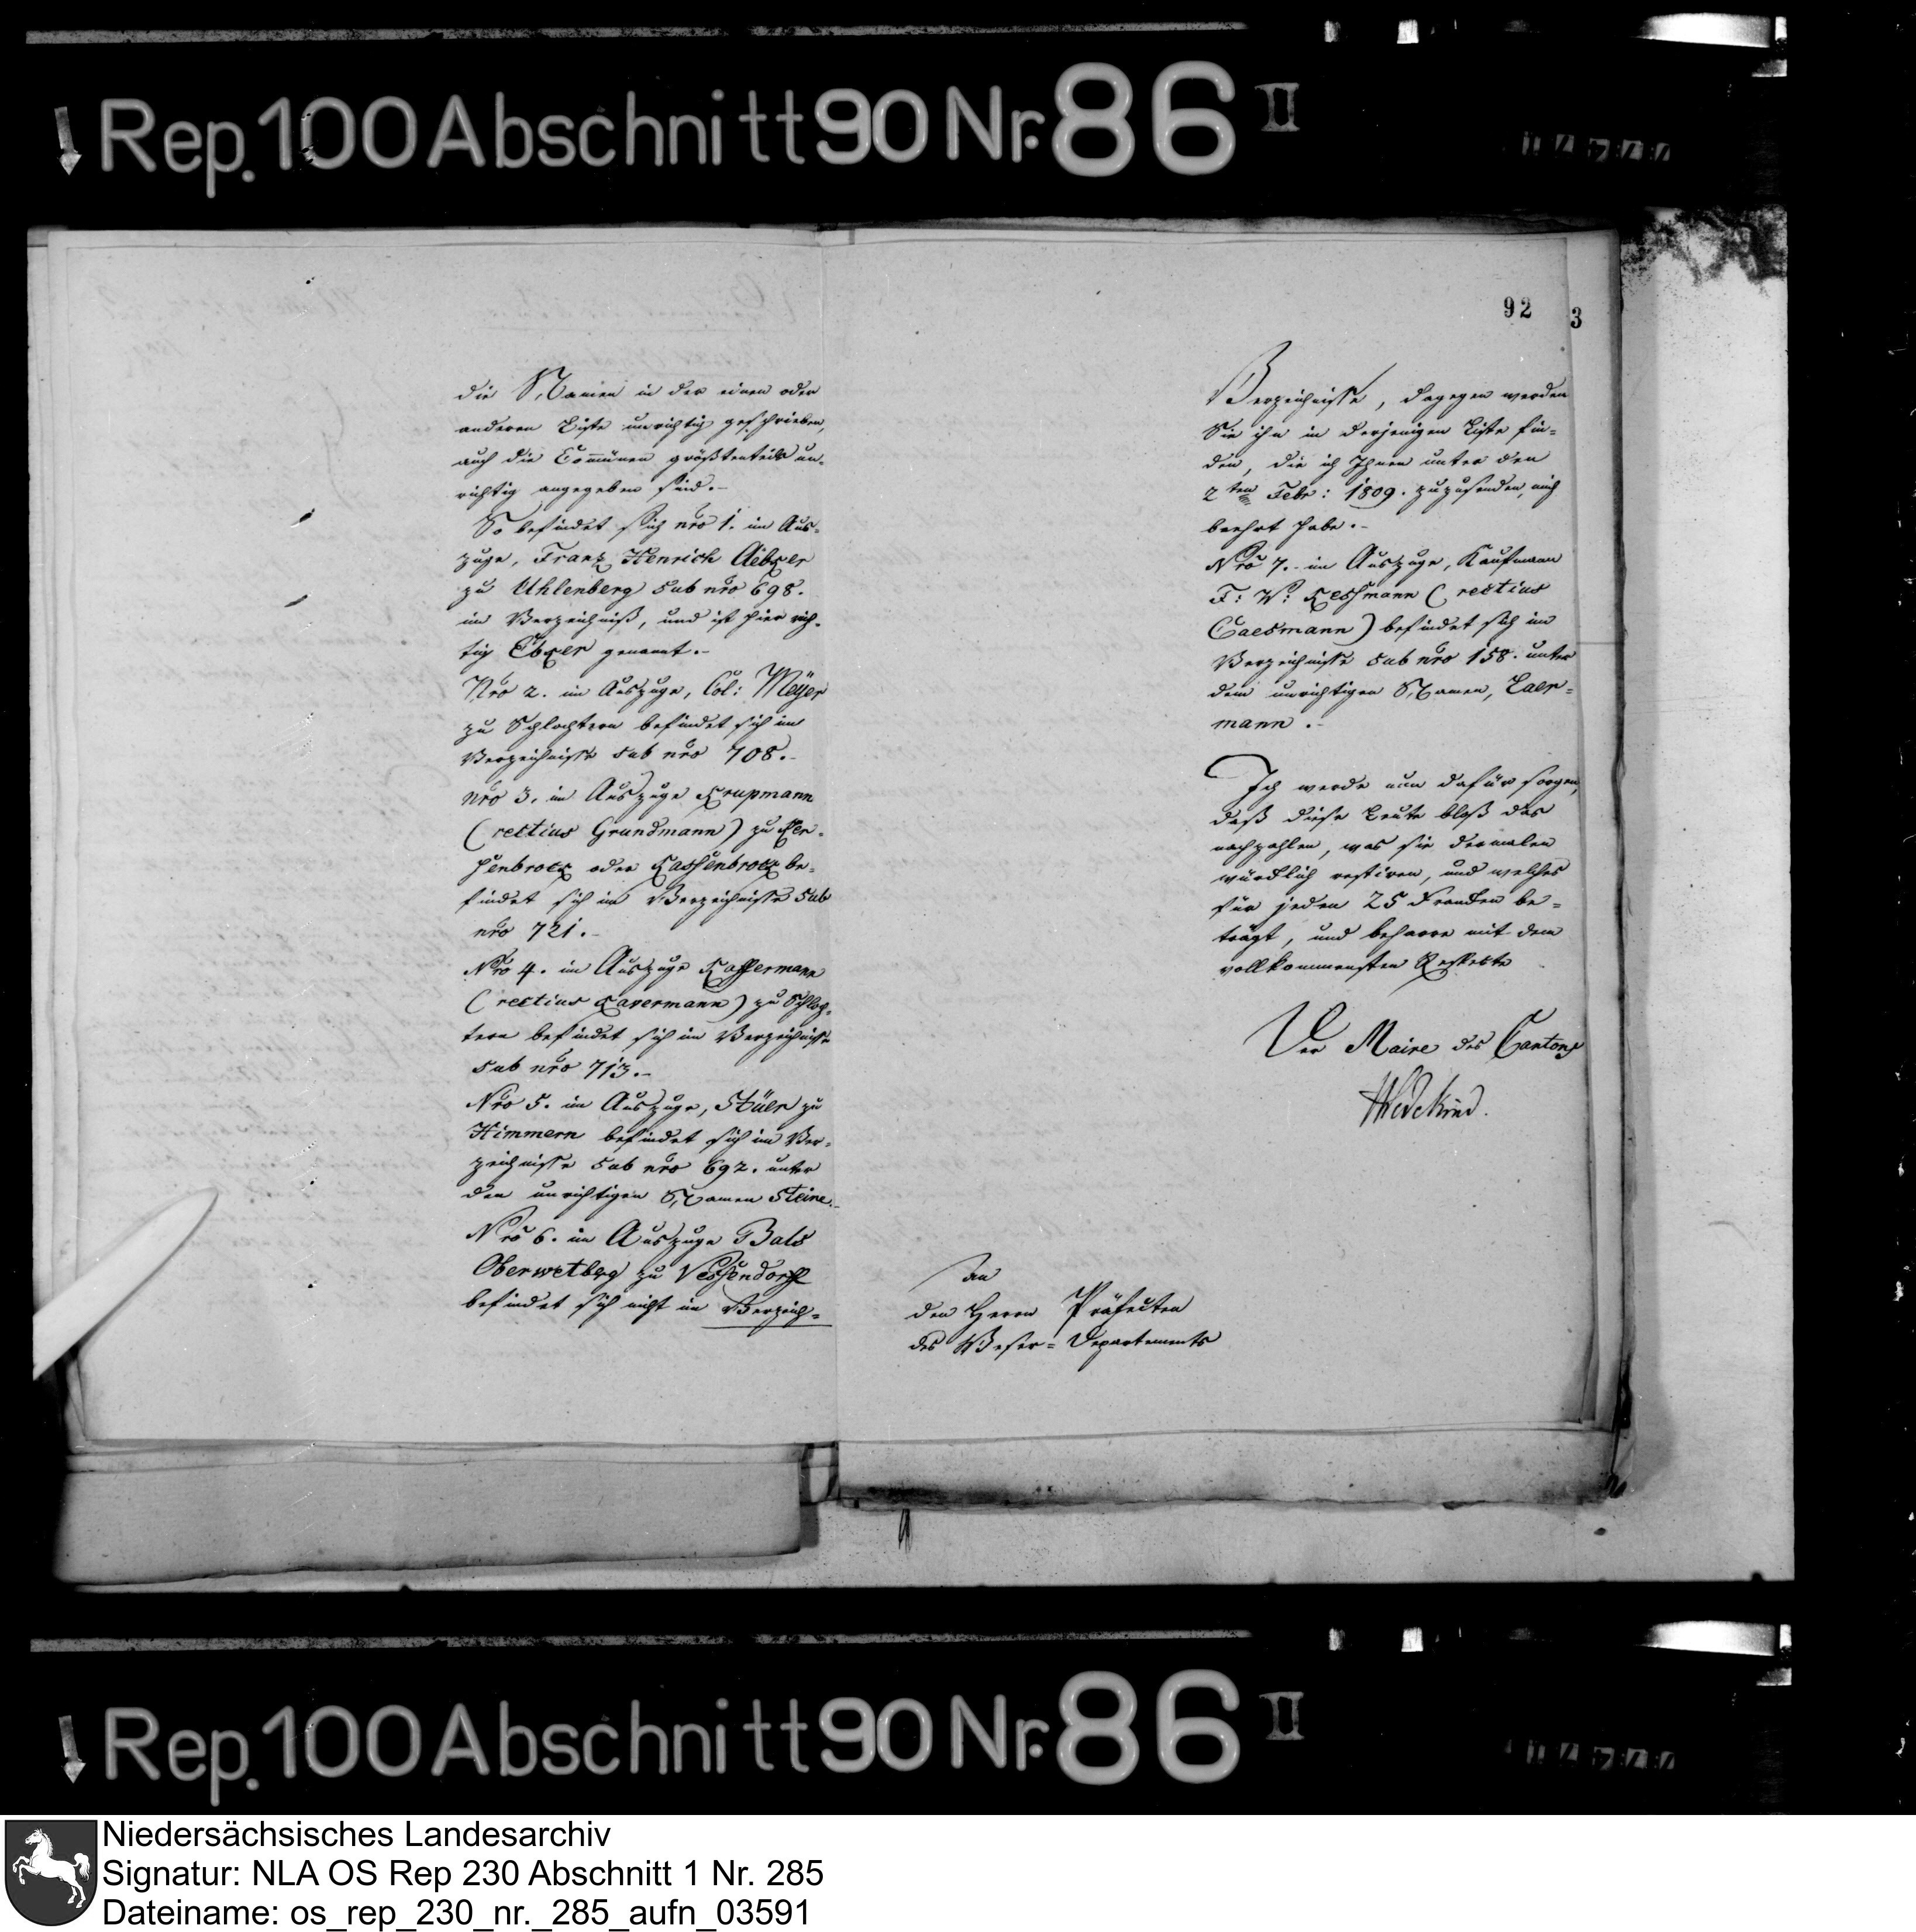 Rep. 100 Abschnitt 90 Nr. 86 II
die Namen in der einen oder
anderen Liste unrichtig geschrieben,
auch die Communen größtenteils un-
richtig angegeben sind.-
So befindet sich nro 1. im Aus-
zuge, Franz Henrich
zu Uhlenberg sub nro 698.
im Verzeichniß, und ist hier rich-
tig genannt.-
Nro 2. im Auszuge, Col: Meÿer
zu Schlochtern befindet sich im
Verzeichnisse sub nro 708.-
nro 3. im Auszuge Krupmann
(rectius Grundmann) zu
oder be-
findet sich im Verzeichnisse sub
nro 721.-
Nro 4. im Auszuge
(rectius ) zu Schloch-
tern befindet sich im Verzeichnisse
sub nro 713.-
Nro 5. im Auszuge, Stüer zu
Himmern befindet sich im Ver-
zeichnisse sub nro 692. unter
den unrichtigen Namen Steine.-
Nro 6. im Auszuge
zu Vessendorff
befindet sich nicht im Verzeich-
92 3
Verzeichnisse, dagegen werden
Sie ihn in derjenigen Liste fin-
den, die ich Ihnen unter den
2ten Febr: 1809. zuzusenden, mich
beehrt habe.-
Nro 7.- im Auszuge, Kaufmann
F: W: (rectius
) befindet sich im
Verzeichnisse sub nro 158. unter
dem unrichtigen Namen, Laer-
mann.-
Ich werde nun dafür sorgen,
daß diese Leute bloß das
nachzahlen, was sie dermalen
würcklich restiren, und welches
für jeden 25 Francken be-
trägt, und beharre mit dem
vollkommensten Respecte
Der Maire des Cantons
Wedekind.
An
den Herrn Präfecten
des Weser-Departements
Rep. 100 Abschnitt 90 Nr. 86 II
Niedersächsisches Landesarchiv
Signatur: NLA OS Rep 230 Abschnitt 1 Nr. 285
Dateiname: os_rep_230_nr._285_aufn_03591